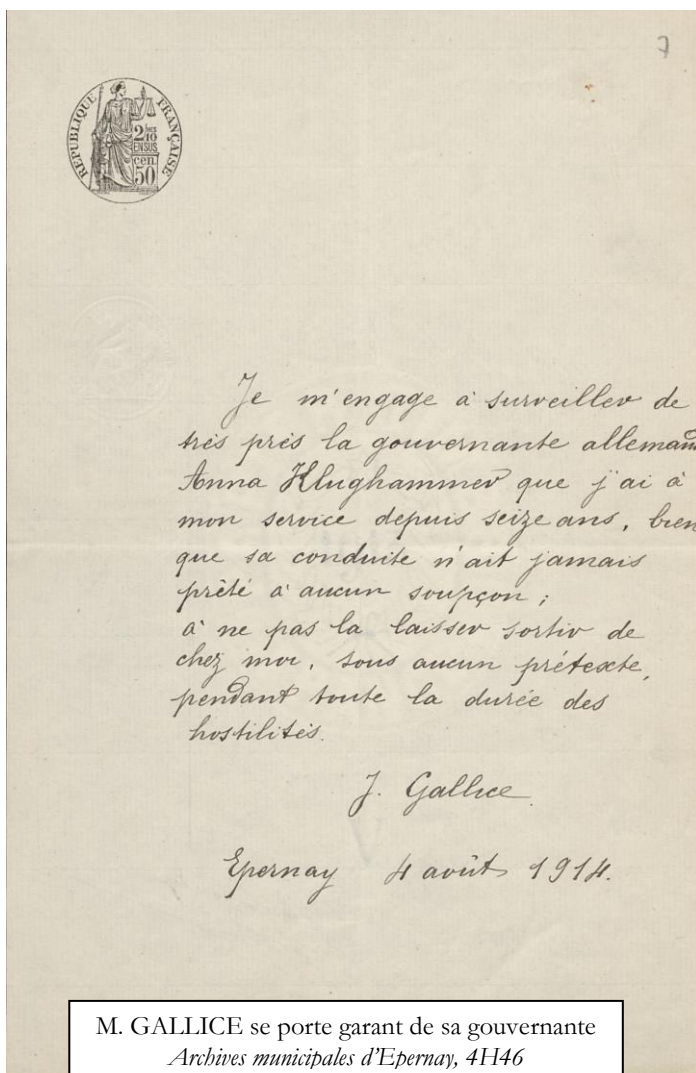 7
RÉPUBLIQUE FRANÇAISE
2 10
EN SUS
cen.
50
Je m'engage à surveiller de
très près la gouvernante alleman
Anna Klughammer que j'ai à
mon service depuis seize ans, bien
que sa conduite n'ait jamais
prêté à aucun soupçon ;
à ne pas la laisser sortir de
chez moi, sous aucun prétexte,
pendant toute la durée des
hostilités.
J. Gallice
Epernay 4 août 1914.
M. GALLICE se porte garant de sa gouvernante
Archives municipales d'Epernay, 4H46